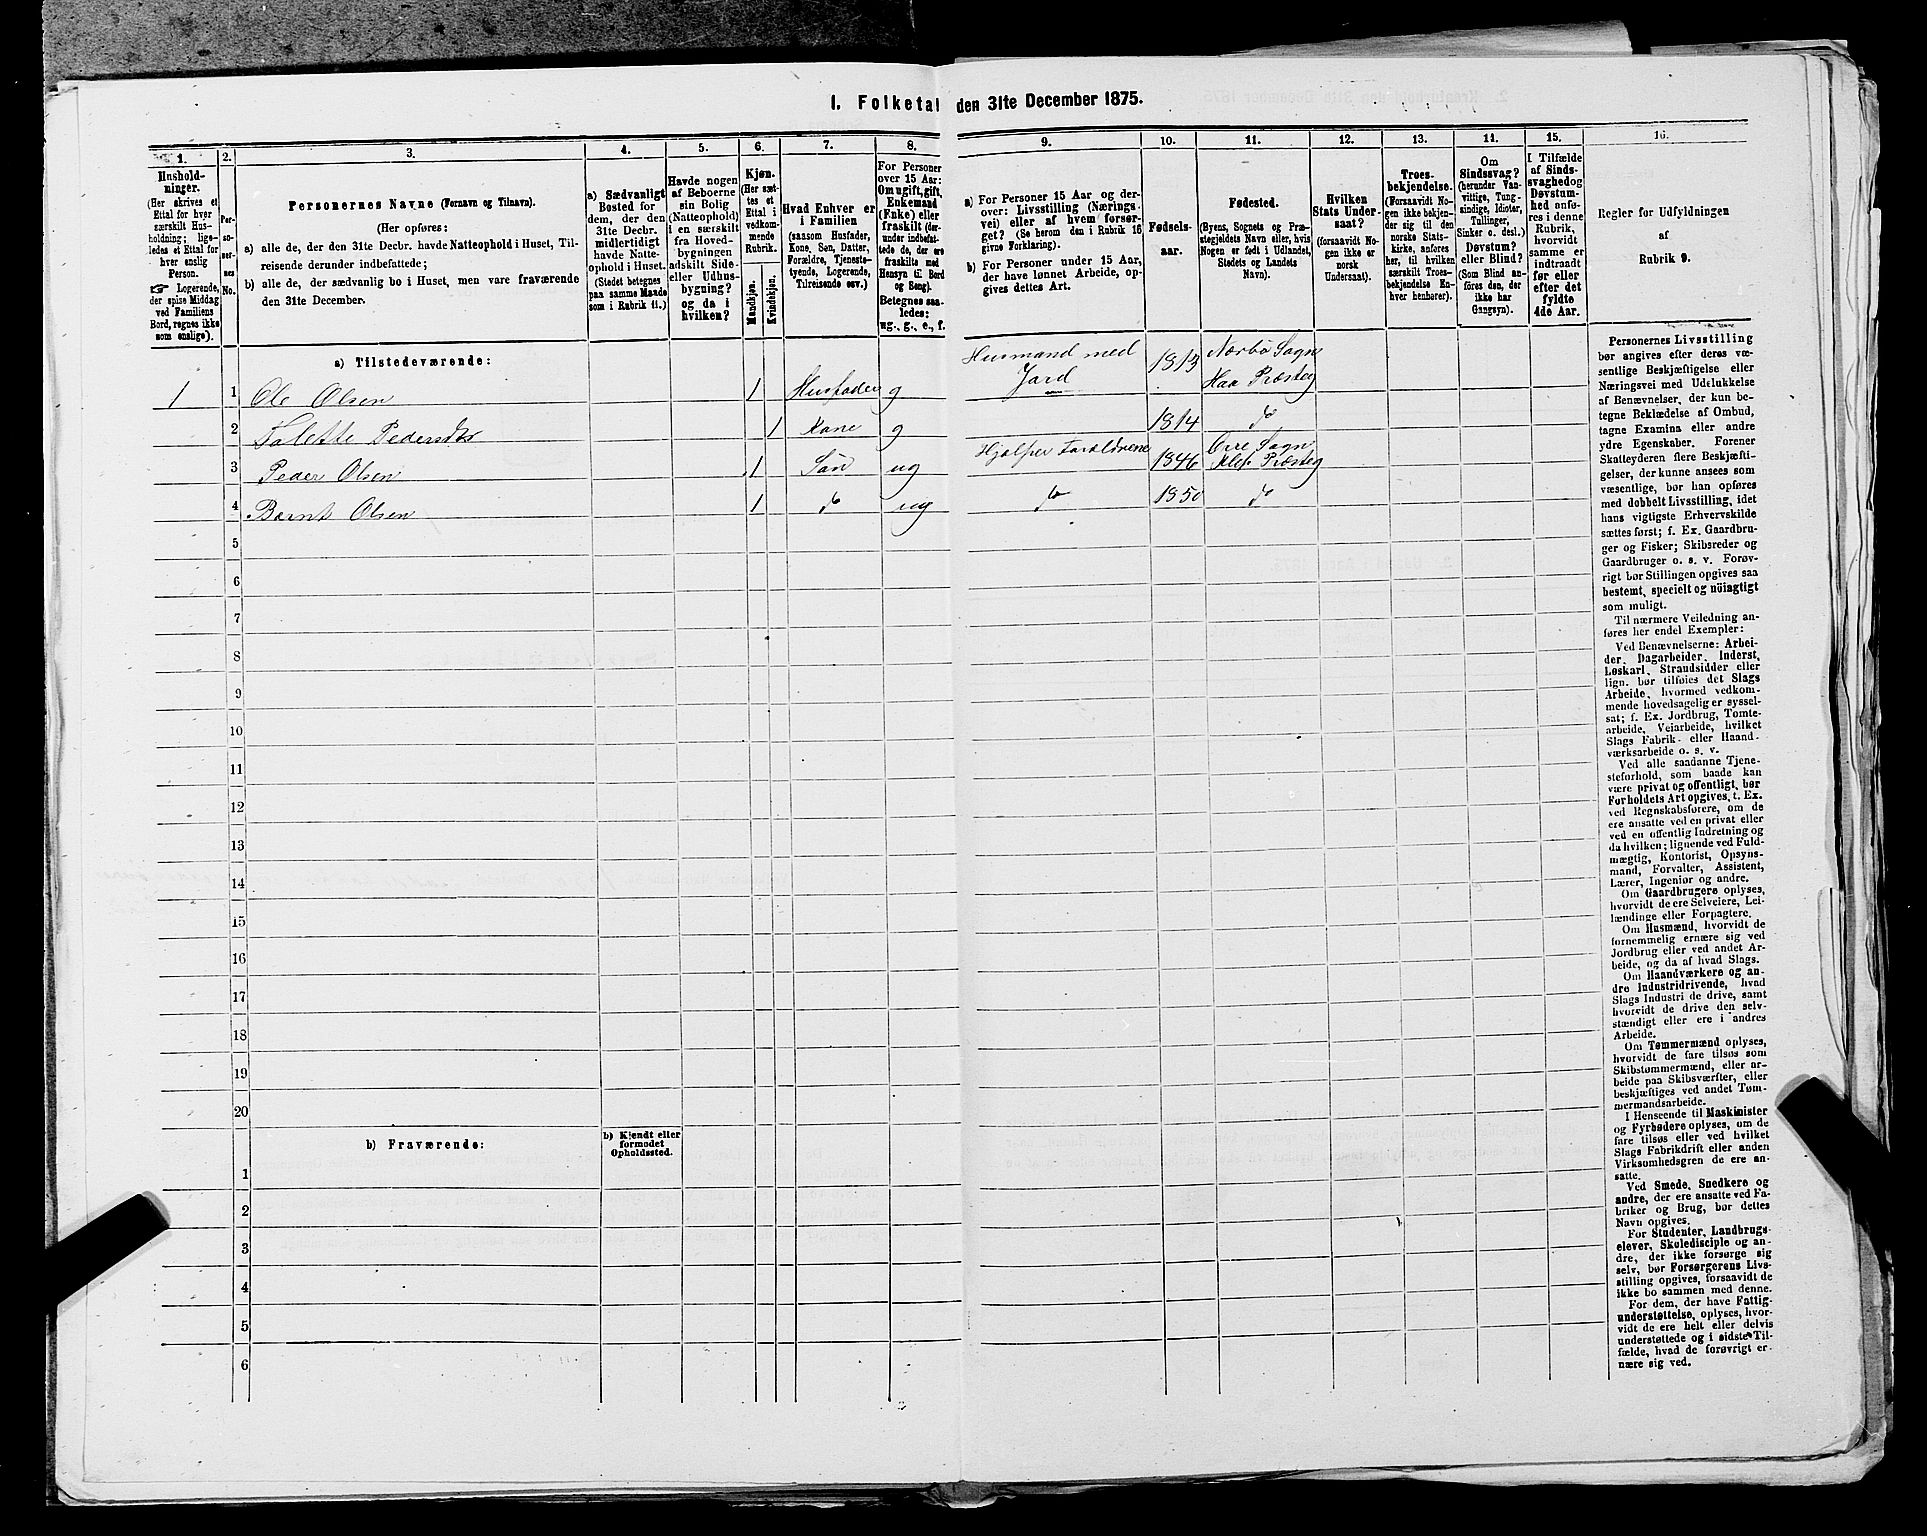 1. Folketal den 31te December 1875.
1. 2. 3. 4. 5. 6. 7. 8. 9. 10. 11. 12. 13. 14. 15. 16.
Hushold-
ninger.
(Her skrives et
Ettal for hver
særskilt Hus-
holdning; lige-
ledes et Ettal for
hver enslig
Person.
☞ Logerende,
der spise Middag
ved Familiens
Bord, regnes ikke
som enslige).
Per-
so-
ner-
nes
No.
Personernes Navne (Fornavn og Tilnavn).
(Her opføres:
a) alle de, der den 31te Decbr. havde Natteophold i Huset, Til-
reisende derunder indbefattede;
b) alle de, der sædvanlig bo i Huset, men vare fraværende
den 31te December.
a) Sædvanligt
Bosted for
dem, der den
31te Decbr.
midlertidigt
havde Natte-
ophold i Huset.
(Stedet betegnes
paa samme Maade
som i Rubrik 11.)
Havde nogen
af Beboerne
sin Bolig
(Natteophold)
i en særskilt
fra Hoved-
bygningen
adskilt Side-
eller Udhus-
bygning?
og da i
hvilken?
Kjøn.
(Her sæt-
tes et
Ettal i
vedkom-
mende
Rubrik.
Mandkjøn.
Kvindekjøn.
Hvad Enhver er
i Familien
(saasom Husfader,
Kone, Søn, Datter,
Forældre, Tjeneste-
tyende, Logerende,
Tilreisende osv.)
For Personer
over 15 Aar:
Om ugift, gift,
Enkemand
(Enke) eller
fraskilt (der-
under indbefat-
tede de, der ere
fraskilte med
Hensyn til Bord
og Seng).
Betegnes saa-
ledes:
ug., g., e., f.
a) For Personer 15 Aar og der-
over: Livsstilling (Nærings-
vei) eller af hvem forsør-
get? (Se herom den i Rubrik 16
givne Forklaring).
b) For Personer under 15 Aar,
der have lønnet Arbeide, op-
gives dettes Art.
Fødsels-
aar.
Fødested.
(Byens, Sognets og Præ-
stegjeldets Navn eller, hvis
Nogen er født i Udlandet,
Stedets og Landets
Navn).
Hvilken
Stats Under-
saat?
(forsaavidt No-
gen ikke er
norsk
Undersaat).
Troes-
bekjendelse.
(Forsaavidt No-
gen ikke bekjen-
der sig til den
norske Stats-
kirke, anføres
her, til hvilken
særskilt Troes-
bekjendelse En-
hver henhører).
Om
Sindssvag?
(herunder Van-
vittige, Tung-
sindige, Idioter,
Tullinger,
Sinker o. desl.)
Døvstum?
eller Blind?
(Som Blind an-
føres den, der
ikke har
Gangsyn).
I Tilfælde
af Sinds-
svaghed og
Døvstum-
hed anfø-
res i denne
Rubrik,
hvorvidt
samme er
indtraadt
før eller
efter det
fyldte
4de Aar.
Regler for Udfyldningen
af
Rubrik 9.
a) Tilstedeværende:
1 1 Ole Olsen 1 Husfader g Husmand med Jord 1813 Nærbø Sogn Haa Præsteg
2 Talette Pedersdtr 1 Kone g 1814 do
3 Peder Olsen 1 Søn ug Hjælper Forældrene 1846 Orre Sogn Klep Præsteg
4 Bernt Olsen 1 do ug do 1850 do
5
6
7
8
9
10
11
12
13
14
15
16
17
18
19
20
b) Fraværende:
b) Kjendt eller
formodet
Opholdssted.
1
2
3
4
5
6
Personernes Livsstilling
bør angives efter deres væ-
sentlige Beskjæftigelse eller
Næringsvei med Udelukkelse
af Benævnelser, der kun be-
tegne Beklædelse af Ombud,
tagne Examina eller andre
ydre Egenskaber. Forener
Skatteyderen flere Beskjæfti-
gelser, der kunne ansees som
væsentlige, bør han opføres
med dobbelt Livsstilling, idet
hans vigtigste Erhvervskilde
sættes først; f. Ex. Gaardbru-
ger og Fisker; Skibsreder og
Gaardbruger o. s. v. Forøv-
rigt bør Stillingen opgives saa
bestemt, specielt og nøiagtigt
som muligt.
Til nærmere Veiledning an-
føres her endel Exempler:
Ved Benævnelserne: Arbei-
der, Dagarbeider, Inderst,
Løskarl, Strandsidder eller
lign. bør tilføies det Slags
Arbeide, hvormed vedkom-
mende hovedsagelig er syssel-
sat; f. Ex. Jordbrug, Tomte-
arbeide, Veiarbeide, hvilket
Slags Fabrik- eller Haand-
værksarbeide o. s. v.
Ved alle saadanne Tjene-
steforhold, som baade kan
være privat og offentligt, bør
Forholdets Art opgives, t. Ex.
ved Regnskabsførere, om de
ere ansatte ved en privat eller
ved en offentlig Indretning og
da hvilken; lignende ved Fuld-
mægtig, Kontorist, Opsyns-
mand, Forvalter, Assistent,
Lærer, Ingeniør og andre.
Om Gaardbrugere oplyses,
hvorvidt de ere Selveiere, Lei-
lændinge eller Forpagtere.
Om Husmænd, hvorvidt de
fornemmelig ernære sig ved
Jordbrug eller ved andet Ar-
beide, og da af hvad Slags.
Om Haandværkere og an-
dre Industridrivende, hvad
Slags Industri de drive, samt
hvorvidt de drive den selv-
stændigt eller ere i andres
Arbeide.
Om Tømmermænd oplyses,
hvorvidt de fare tilsøs som
Skibstømmermænd, eller ar-
beide paa Skibsværfter, eller
beskjæftiges ved andet Tøm-
mermandsarbeide.
I Henseende til Maskinister
og Fyrbødere oplyses, om de
fare tilsøs eller ved hvilket
Slags Fabrikdrift eller anden
Virksomhedsgren de ere an-
satte.
Ved Smede, Snedkere og
andre, der ere ansatte ved Fa-
briker og Brug, bør dettes
Navn opgives.
For Studenter, Landbrugs-
elever, Skoledisciple og an-
dre, der ikke forsørge sig
selv, bør Forsørgerens Livs-
stilling opgives, forsaavidt de
ikke bo sammen med denne.
For dem, der have Fattig-
understøttelse, oplyses, hvor-
vidt de ere helt eller delvis
understøttede og i sidste Til-
fælde, hvad de forøvrigt er-
nære sig ved.